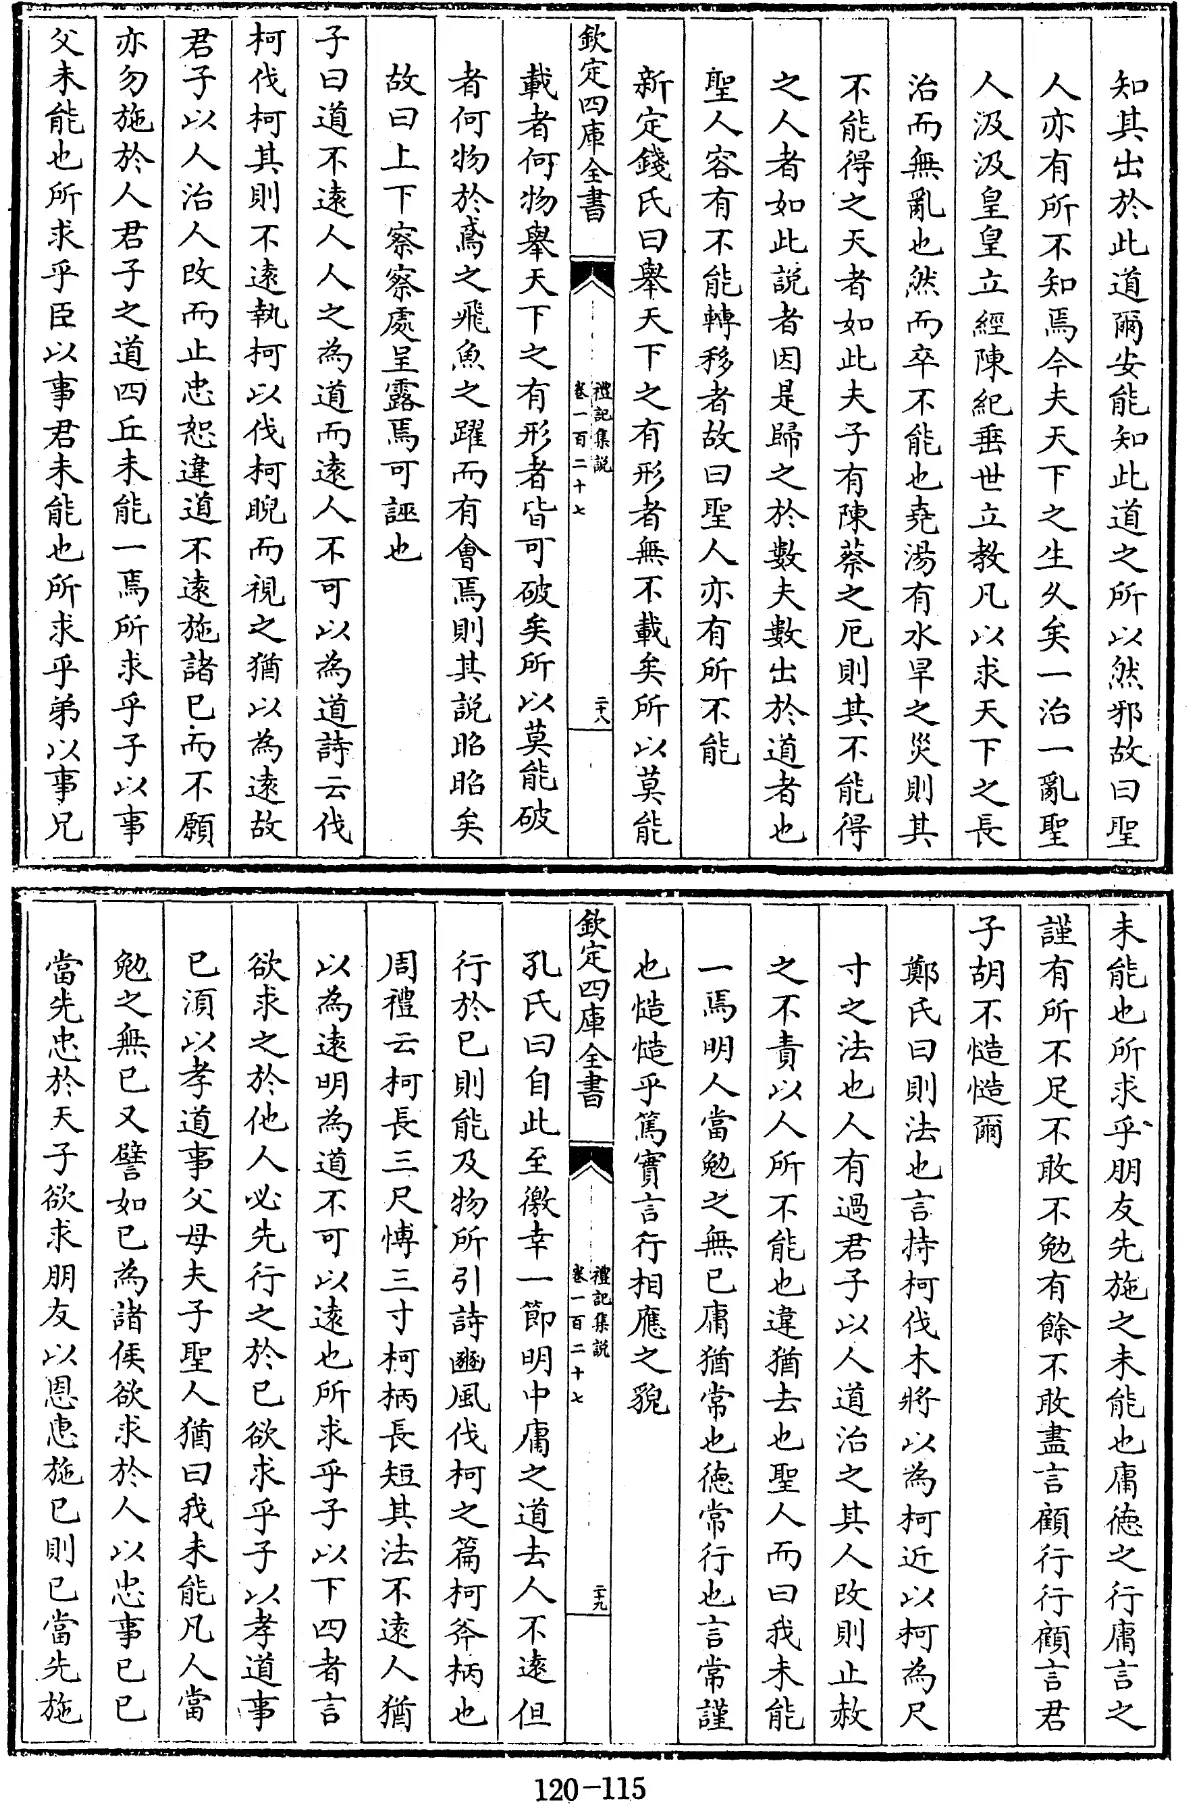 知其出於此道爾安能知此道之所以然邪故曰聖
人亦有所不知焉今夫天下之生久矣一治一亂聖
人汲汲皇皇立經陳紀垂世立教凡以求天下之長
治而無亂也然而卒不能也堯湯有水旱之災則其
不能得之天者如此夫子有陳蔡之厄則其不能得
之人者如此説者因是歸之於數夫數出於道者也
聖人容有不能轉移者故曰聖人亦有所不能
新定錢氏曰舉天下之有形者無不載矣所以莫能
欽定四庫全書
禮記集説
卷一百二十七
二十八
載者何物舉天下之有形者皆可破矣所以莫能破
者何物於鳶之飛魚之躍而有會焉則其説昭昭矣
故曰上下察察處呈露焉可誣也
子曰道不遠人人之為道而遠人不可以為道詩云伐
柯伐柯其則不遠執柯以伐柯睨而視之猶以為遠故
君子以人治人改而止忠恕違道不遠施諸已而不願
亦勿施於人君子之道四丘未能一焉所求乎子以事
父未能也所求乎臣以事君未能也所求乎弟以事兄
未能也所求乎朋友先施之未能也庸徳之行庸言之
謹有所不足不敢不勉有餘不敢盡言顧行行顧言君
子胡不慥慥爾
鄭氏曰則法也言持柯伐木將以為柯近以柯為尺
寸之法也人有過君子以人道治之其人改則止赦
之不責以人所不能也違猶去也聖人而曰我未能
一焉明人當勉之無已庸猶常也徳常行也言常謹
也慥慥乎篤實言行相應之貌
欽定四庫全書
禮記集説
卷一百二十七
二十九
孔氏曰自此至徼幸一節明中庸之道去人不遠但
行於已則能及物所引詩豳風伐柯之篇柯斧柄也
周禮云柯長三尺博三寸柯柄長短其法不遠人猶
以為遠明為道不可以遠也所求乎子以下四者言
欲求之於他人必先行之於已欲求乎子以孝道事
已湏以孝道事父母夫子聖人猶曰我未能凡人當
勉之無已又譬如已為諸侯欲求於人以忠事已已
當先忠於天子欲求朋友以恩惠施已則已當先施
120-115